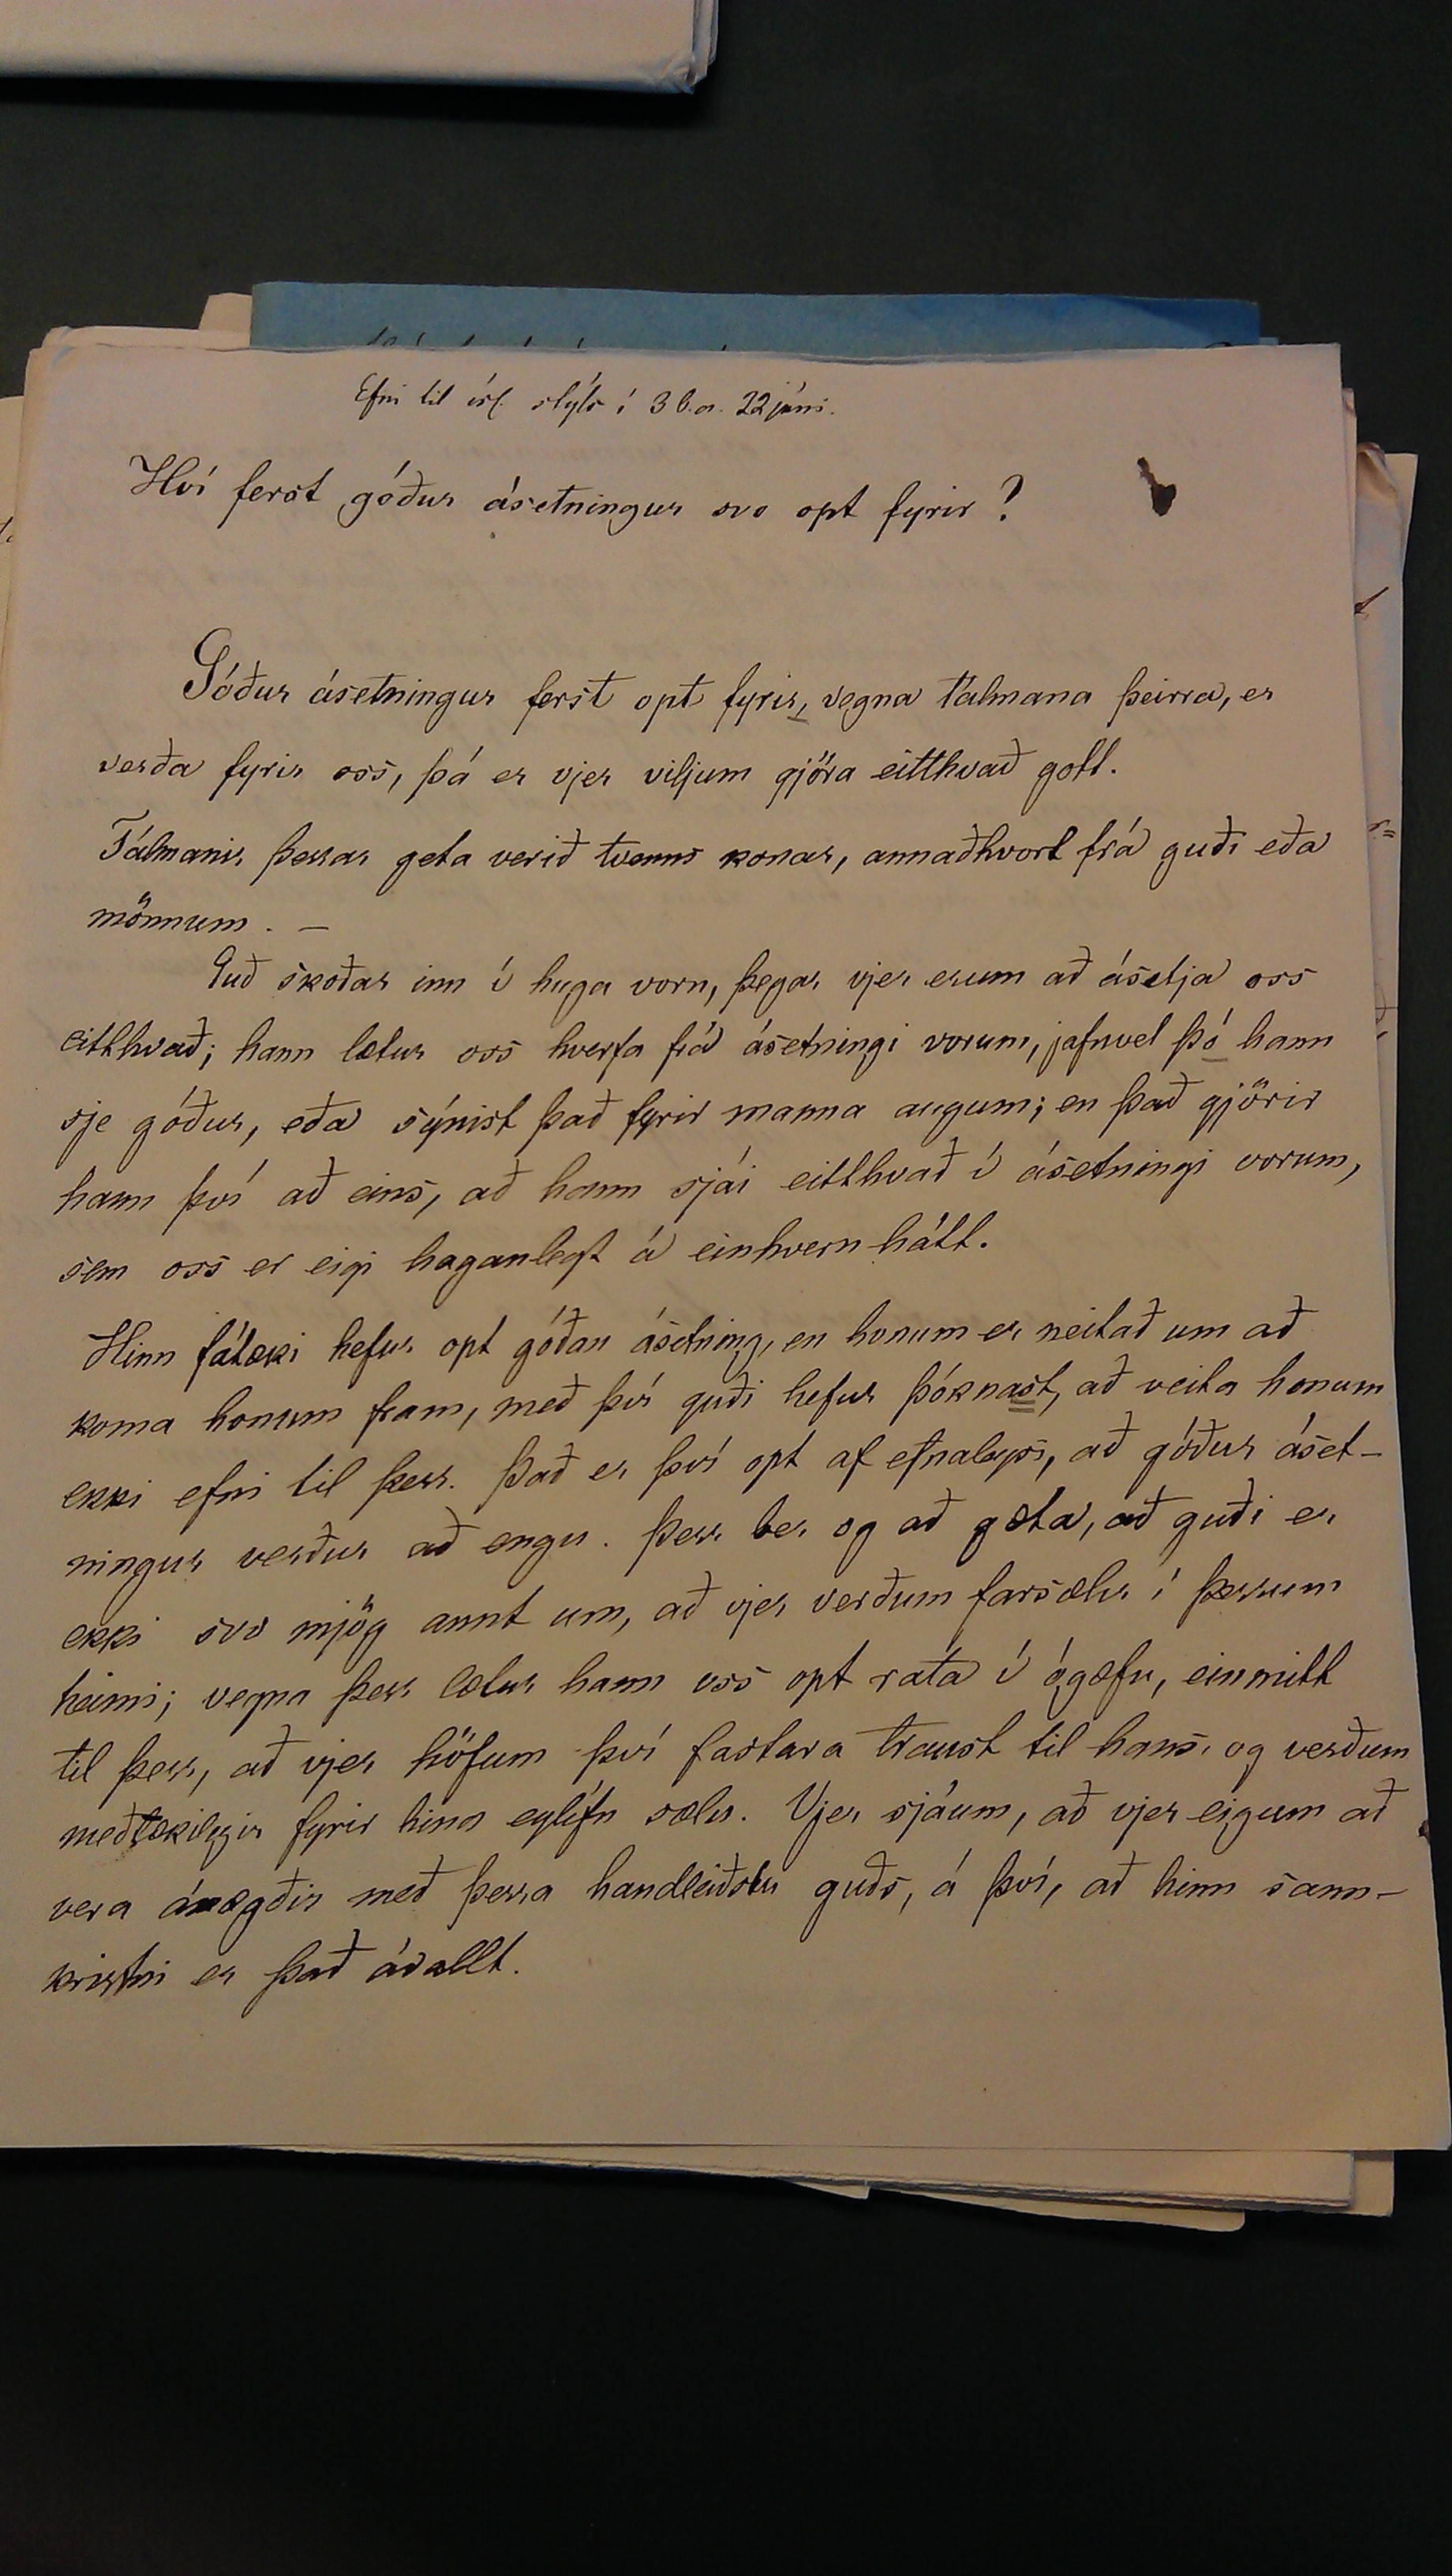 Efni til ísl. stýls í 3 b.a. 22 júni.
Hví ferst góður ásetningur svo opt fyrir?
Góður ásetningur ferst opt fyrir, vegna tálmana þeirra, er
verða fyrir oss, þá er vjer viljum gjöra eitthvað gott.
Tálmanir þessar geta verið tvenns konar, annaðhvort frá guði eða
mönnum. –
Guð skoðar inn í huga vorn, þegar vjer erum að ásetja oss
eitthvað; hann lætur oss hverfa frá ásetningi vorum, jafnvel þó hann
sje góður, eða sýnist það fyrir manna augum; en það gjörir
hann því að eins, að hann sjái eitthvað í ásetningi vorum,
sem oss er eigi haganlegt á einhvern hátt.
Hinn fátæki hefur opt góðan ásetning, en honum er neitað um að
koma honum fram, með því guði hefur þóknast, að veita honum
ekki efni til þess. Það er því opt af efnaleysi, að góður áset-
ningur verður að engu. Þess ber og að gæta, að guði er
ekki svo mjög annt um, að vjer verðum farsælir í þessum
heimi; vegna þess lætur hann oss opt rata í ógæfu, einmitt
til þess, að vjer höfum því fastara traust til hans, og verðum
meðtækilegir fyrir hina eylífu sælu. Vjer sjáum, að vjer eigum að
vera ánægðir með þessa handleiðslu guðs, á því, að hinn sann-
kristni er það ávallt.